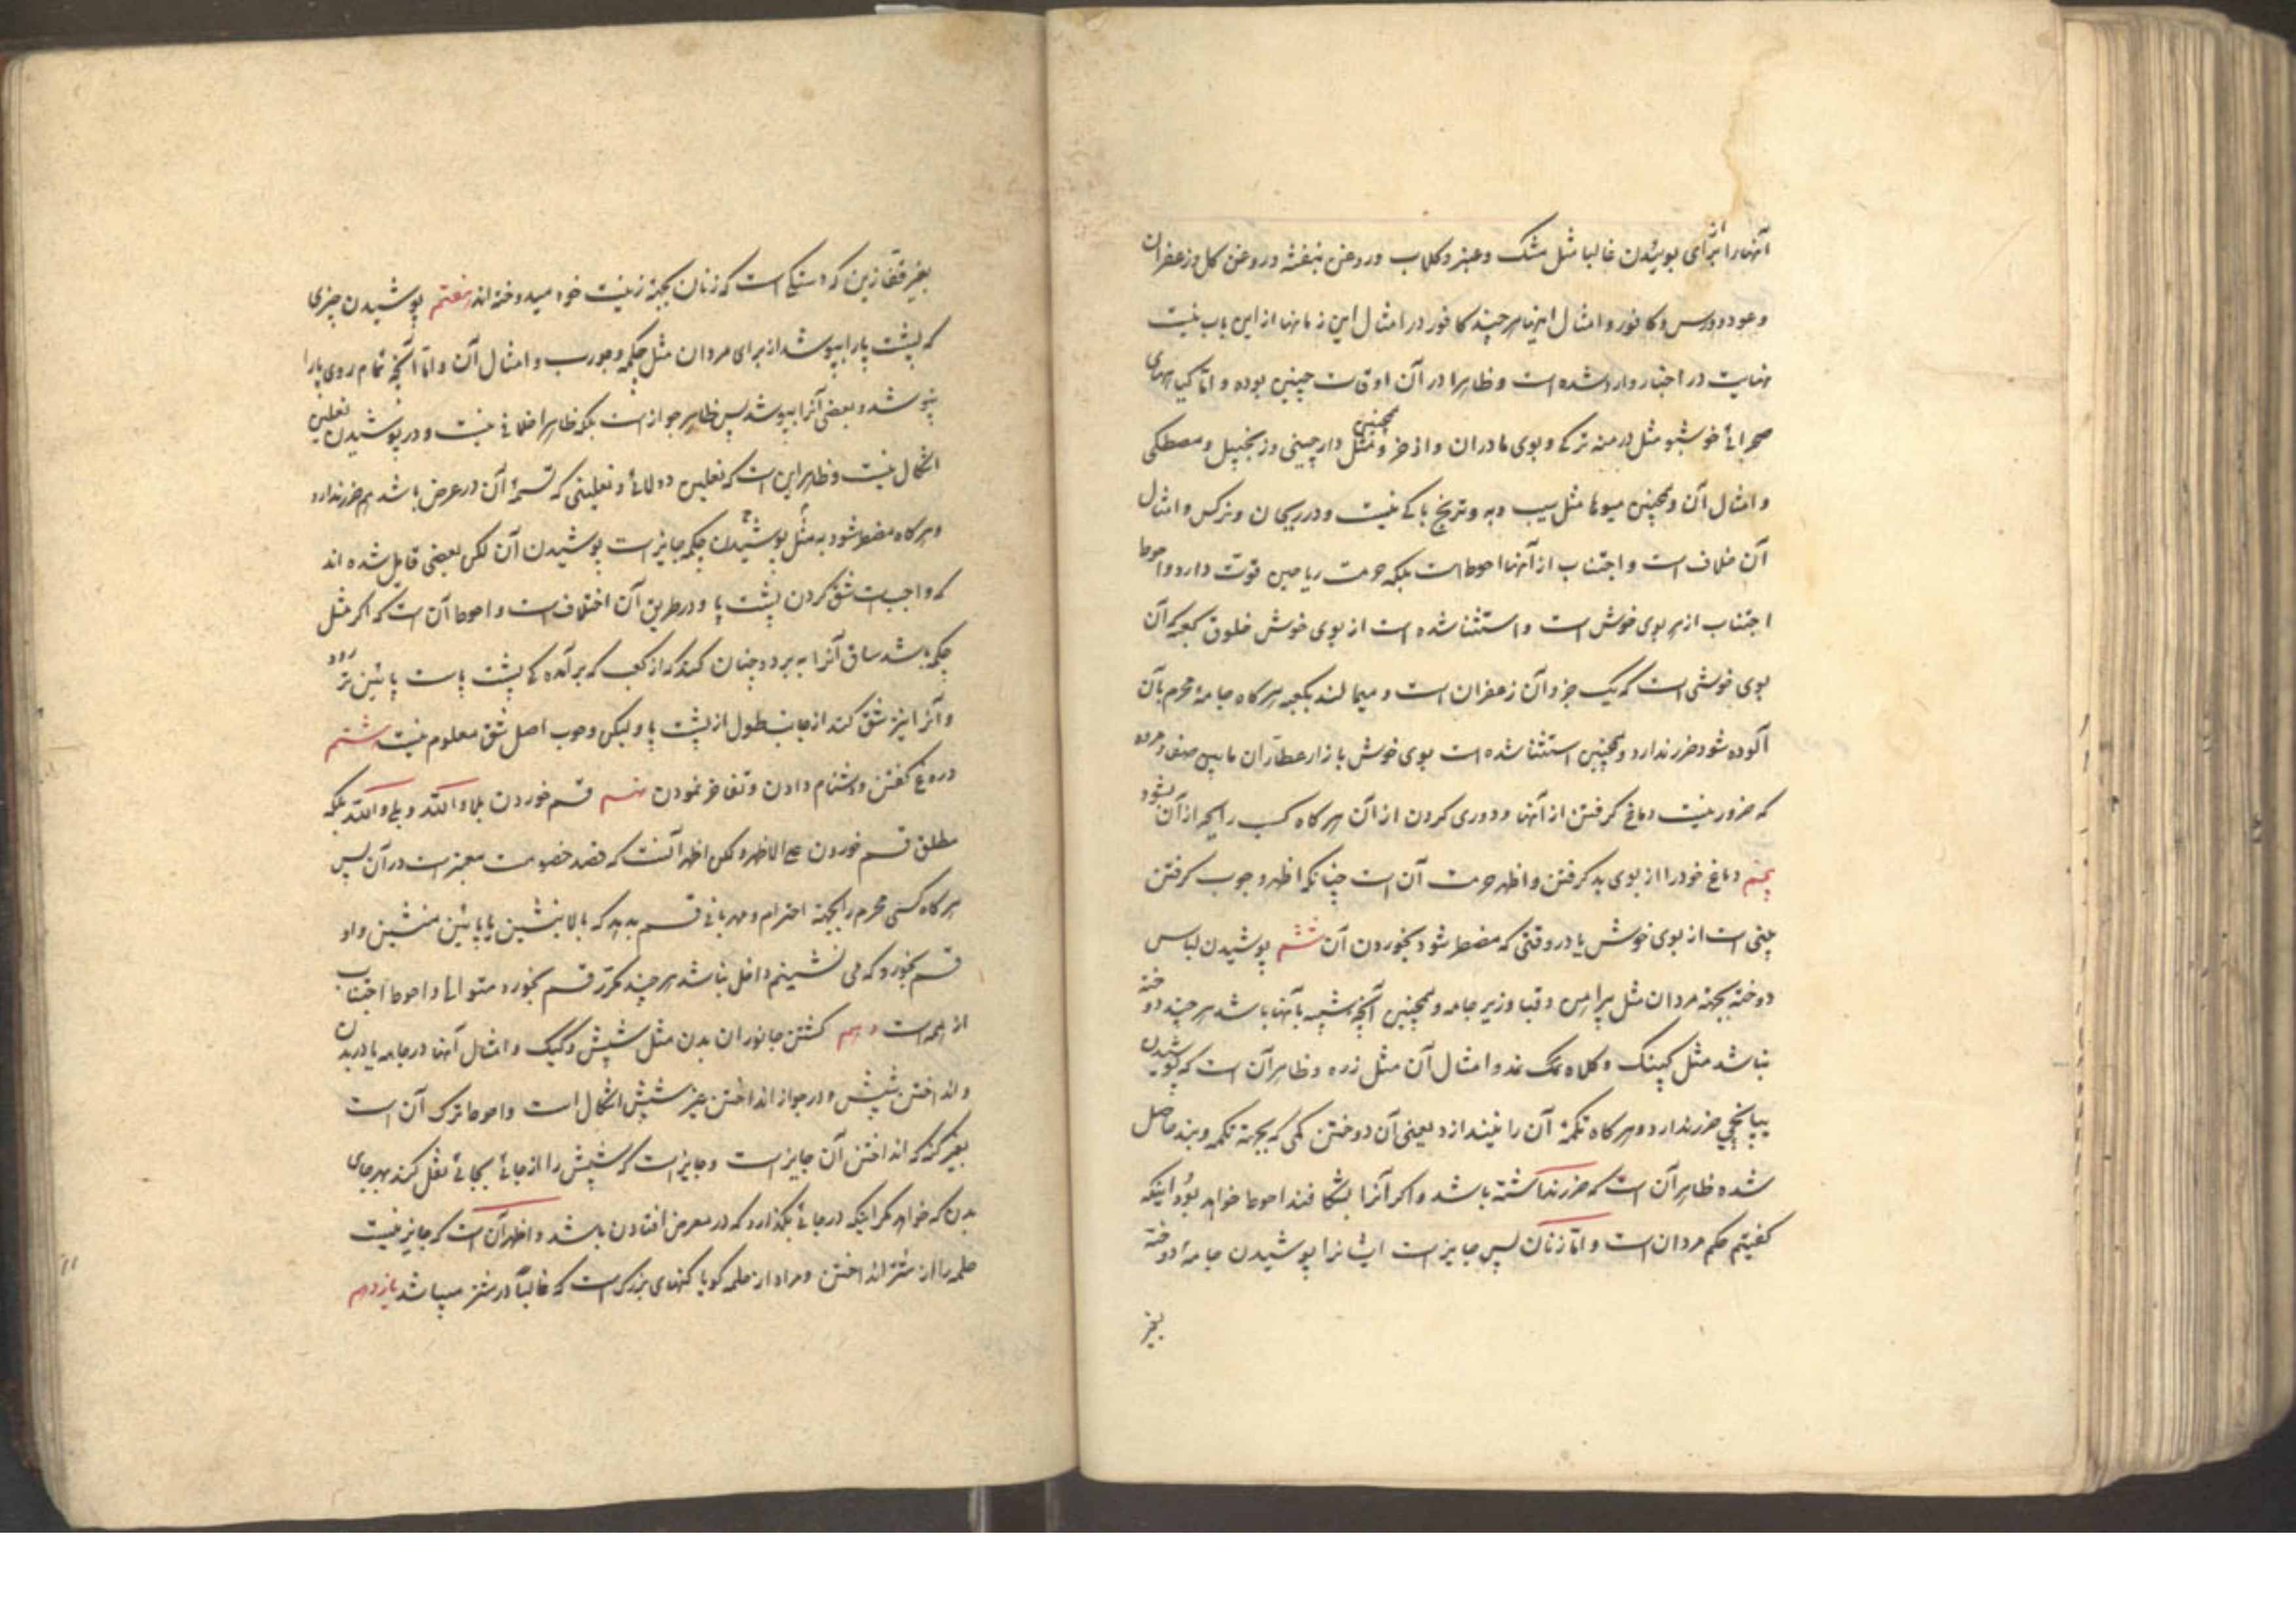 آنها را از برای بوئیدن غالبا مثل مشک و عنبر و کلاب و روغن بنفشه و روغن کل و زعفران
و عود و ورس و کافور و امثال اینها هر چند کافور در امثال این زمانها از این باب نیست
نهایت در اخبار وارد شده است و ظاهرا در آن اوقات چنین بوده و امّا کیاههای
صحرائی خوشبو مثل درمنه ترکی و بوی مادران و اذخر و همچنین مثل دارچینی و زنجبیل و مصطکی
و امثال آن و همچنین میوها مثل سیب و به و ترنج باکی نیست و در ریحان و نرکس و امثال
آن خلاف است و اجتناب از آنها احوط است بلکه حرمت ریاحین قوّت دارد و احوط
اجتناب از هر بوی خوش است و استثنا شده است از بوی خوش خلوق کعبه که آن
بوی خوشی است که یک جزو آن زعفران است و میمالند بکعبه هر کاه جامهٔ محرم بآن
آلوده شود ضرر ندارد و همچنین استثنا شده است بوی خوش بازار عطّاران ما بین صفا و مروه
که ضرور نیست دماغ کرفتن از آنها و دوری کردن از آن هر کاه کسب رایحه از آن نشود
پنجم دماغ خود را از بوی بد کرفتن و اظهر حرمت آن است چنانکه اظهر وجوب کرفتن
بینی است از بوی خوش یا در وقتی که مضطر شود بخوردن آن ششم پوشیدن لباس
دوخته بجهته مردان مثل پیراهن و قبا و زیر جامه و همچنین آنچه شبیه بآنها باشد هر چند دوخته
نباشد مثل کپنک و کلاه نمد و امثال آن مثل زره و ظاهر آن است که پوشیدن
ضرر ندارد و هر کاه تکمهٔ آن را نیندازد یعنی آن دوختن کمی که بجهته تکمه و بند حاصل
شده ظاهر آن است که ضرر نداشته باشد و اکر آنرا بشکافند احوط خواهد بود و اینکه
کفتیم حکم مردان است و امّا زنان پس جایز است ایشانرا پوشیدن جامهٔ دوخته
بغیر
بغیر قفّازین که دستکی است که زنان بجهته زینت خود میدوخته اند هفتم پوشیدن چیزی
که پشت پا را بپوشد از برای مردان مثل چکمه و جورب و امثال آن و امّا آنچه تمام روی پا را
نپوشد و بعضی آنرا بپوشد پس ظاهر جواز است بلکه ظاهرا خلافی نیست و در پوشیدن نعلین
اشکال نیست و ظاهر این است که نعلین دولائی و نعلینی که تسمهٔ آن در عرض باشد هم ضرر ندارد
و هر کاه مضطر شود به مثل پوشیدن چکمه جایز است پوشیدن آن لکن بعضی قایل شده اند
که واجب است شق کردن پشت پا و در طریق آن اختلاف است و احوط آن است که اکر مثل
چکمه باشد ساق آنرا ببرد و چنان کند که از کعب که برآمده کی پشت پاست پائین تر رود
و آنرا نیز شق کند از جانب طول از پشت پا و لیکن وجوب اصل شق معلوم نیست هشتم
دروغ کفتن و دشنام دادن و تفاخر نمودن نهم قسم خوردن بلا والله و بلی والله بلکه
مطلق قسم خوردن علی الاظهر و لکن اظهر آنست که قصد خصومت معتبر است در آن پس
هر کاه کسی محرم را بجهته احترام و مهربانی قسم بدهد که بالا بنشین یا پائین منشین و او
قسم بخورد که می نشینم داخل نباشد هر چند مکرّر قسم بخورد متوالی و احوط اجتناب
از همه است دهم کشتن جانوران بدن مثل شپش و کیک و امثال آنها در جامه یا در بدن
و انداختن شپش و در جواز انداختن غیر شپش اشکال است و احوط ترک آن است
بغیر کنه که انداختن آن جایز است و جایز است که شپش را از جائی بجائی نقل کند بهر جای
بدن که خواهد مکر اینکه در جائی بکذارد که در معرض افتادن باشد و اظهر آن است که جایز نیست
حلمه را از شتر انداختن و مراد از حلمه کویا کنهای بزرک است که غالباً در شتر میباشد یازدهم